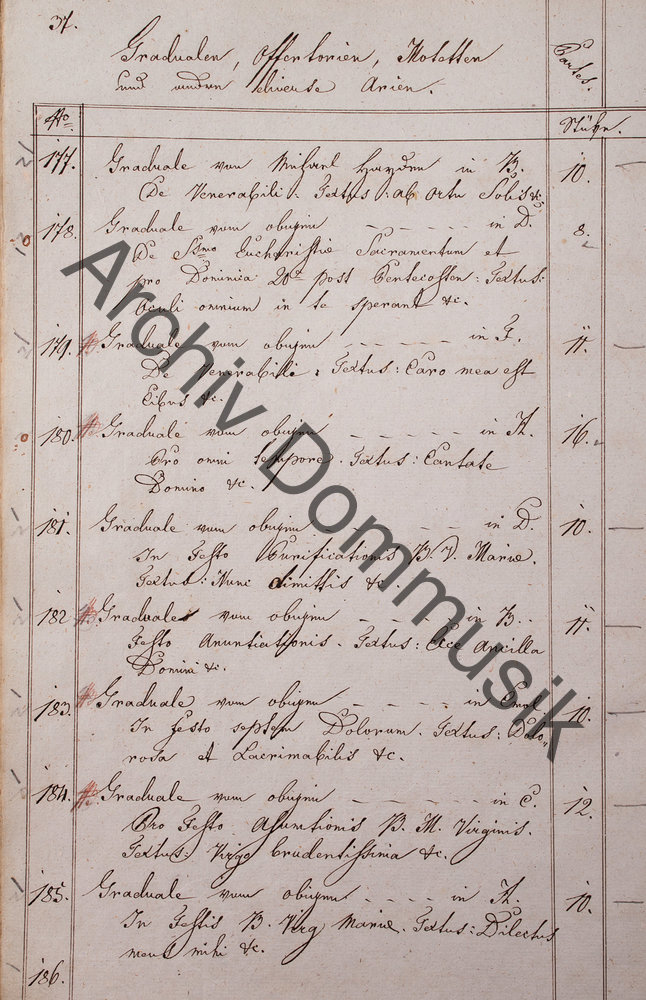 37.
Gradualen, Offertorien, Motetten
und andre diverse Arien.
Partes.
No. Stüke.
177. Graduale von Michael Hayden in B. 10.
De Venerabili. Textus: ab ortu Solis &c.
178. Graduale vom obigen - - - - - - in D. 8.
De Ssmo Eucharistiæ Sacramentum et
pro Dominica 20te post Pentecosten: Textus:
Oculi omnium in te sperant &c.
179. Graduale vom obigen - - - - - in F. 11.
De Venerabili. Textus: Caro mea est
Cibus &c.
180. Graduale vom obigen - - - - - - in A. 16.
Pro omni tempore. Textus: Cantate
Domino &c.
181. Graduale vom obigen - - - - - - in D. 10.
In Festo Purificationis B. V. Mariæ.
Textus: Nunc dimittis &c.
182 Graduale vom obigen - - - - - in B. 11.
Festo Anuntiationis. Textus: Ecce Ancilla
Domini &c.
183. Graduale vom obigen - - - - - in Cmol 10.
In Festo septem Dolorum. Textus: Dolo„
rosa et Lacrimabilis &c.
184. Graduale vom obigen - - - - - - in C. 12.
Pro Festo Asumtionis B. M. Virginis.
Textus: Virgo Prudentissima &c.
185. Graduale vom obigen - - - - in A. 10.
In Festis B. Virg Mariæ. Textus: Dilectus
meus mihi &c.
186.
Archiv Dommusik